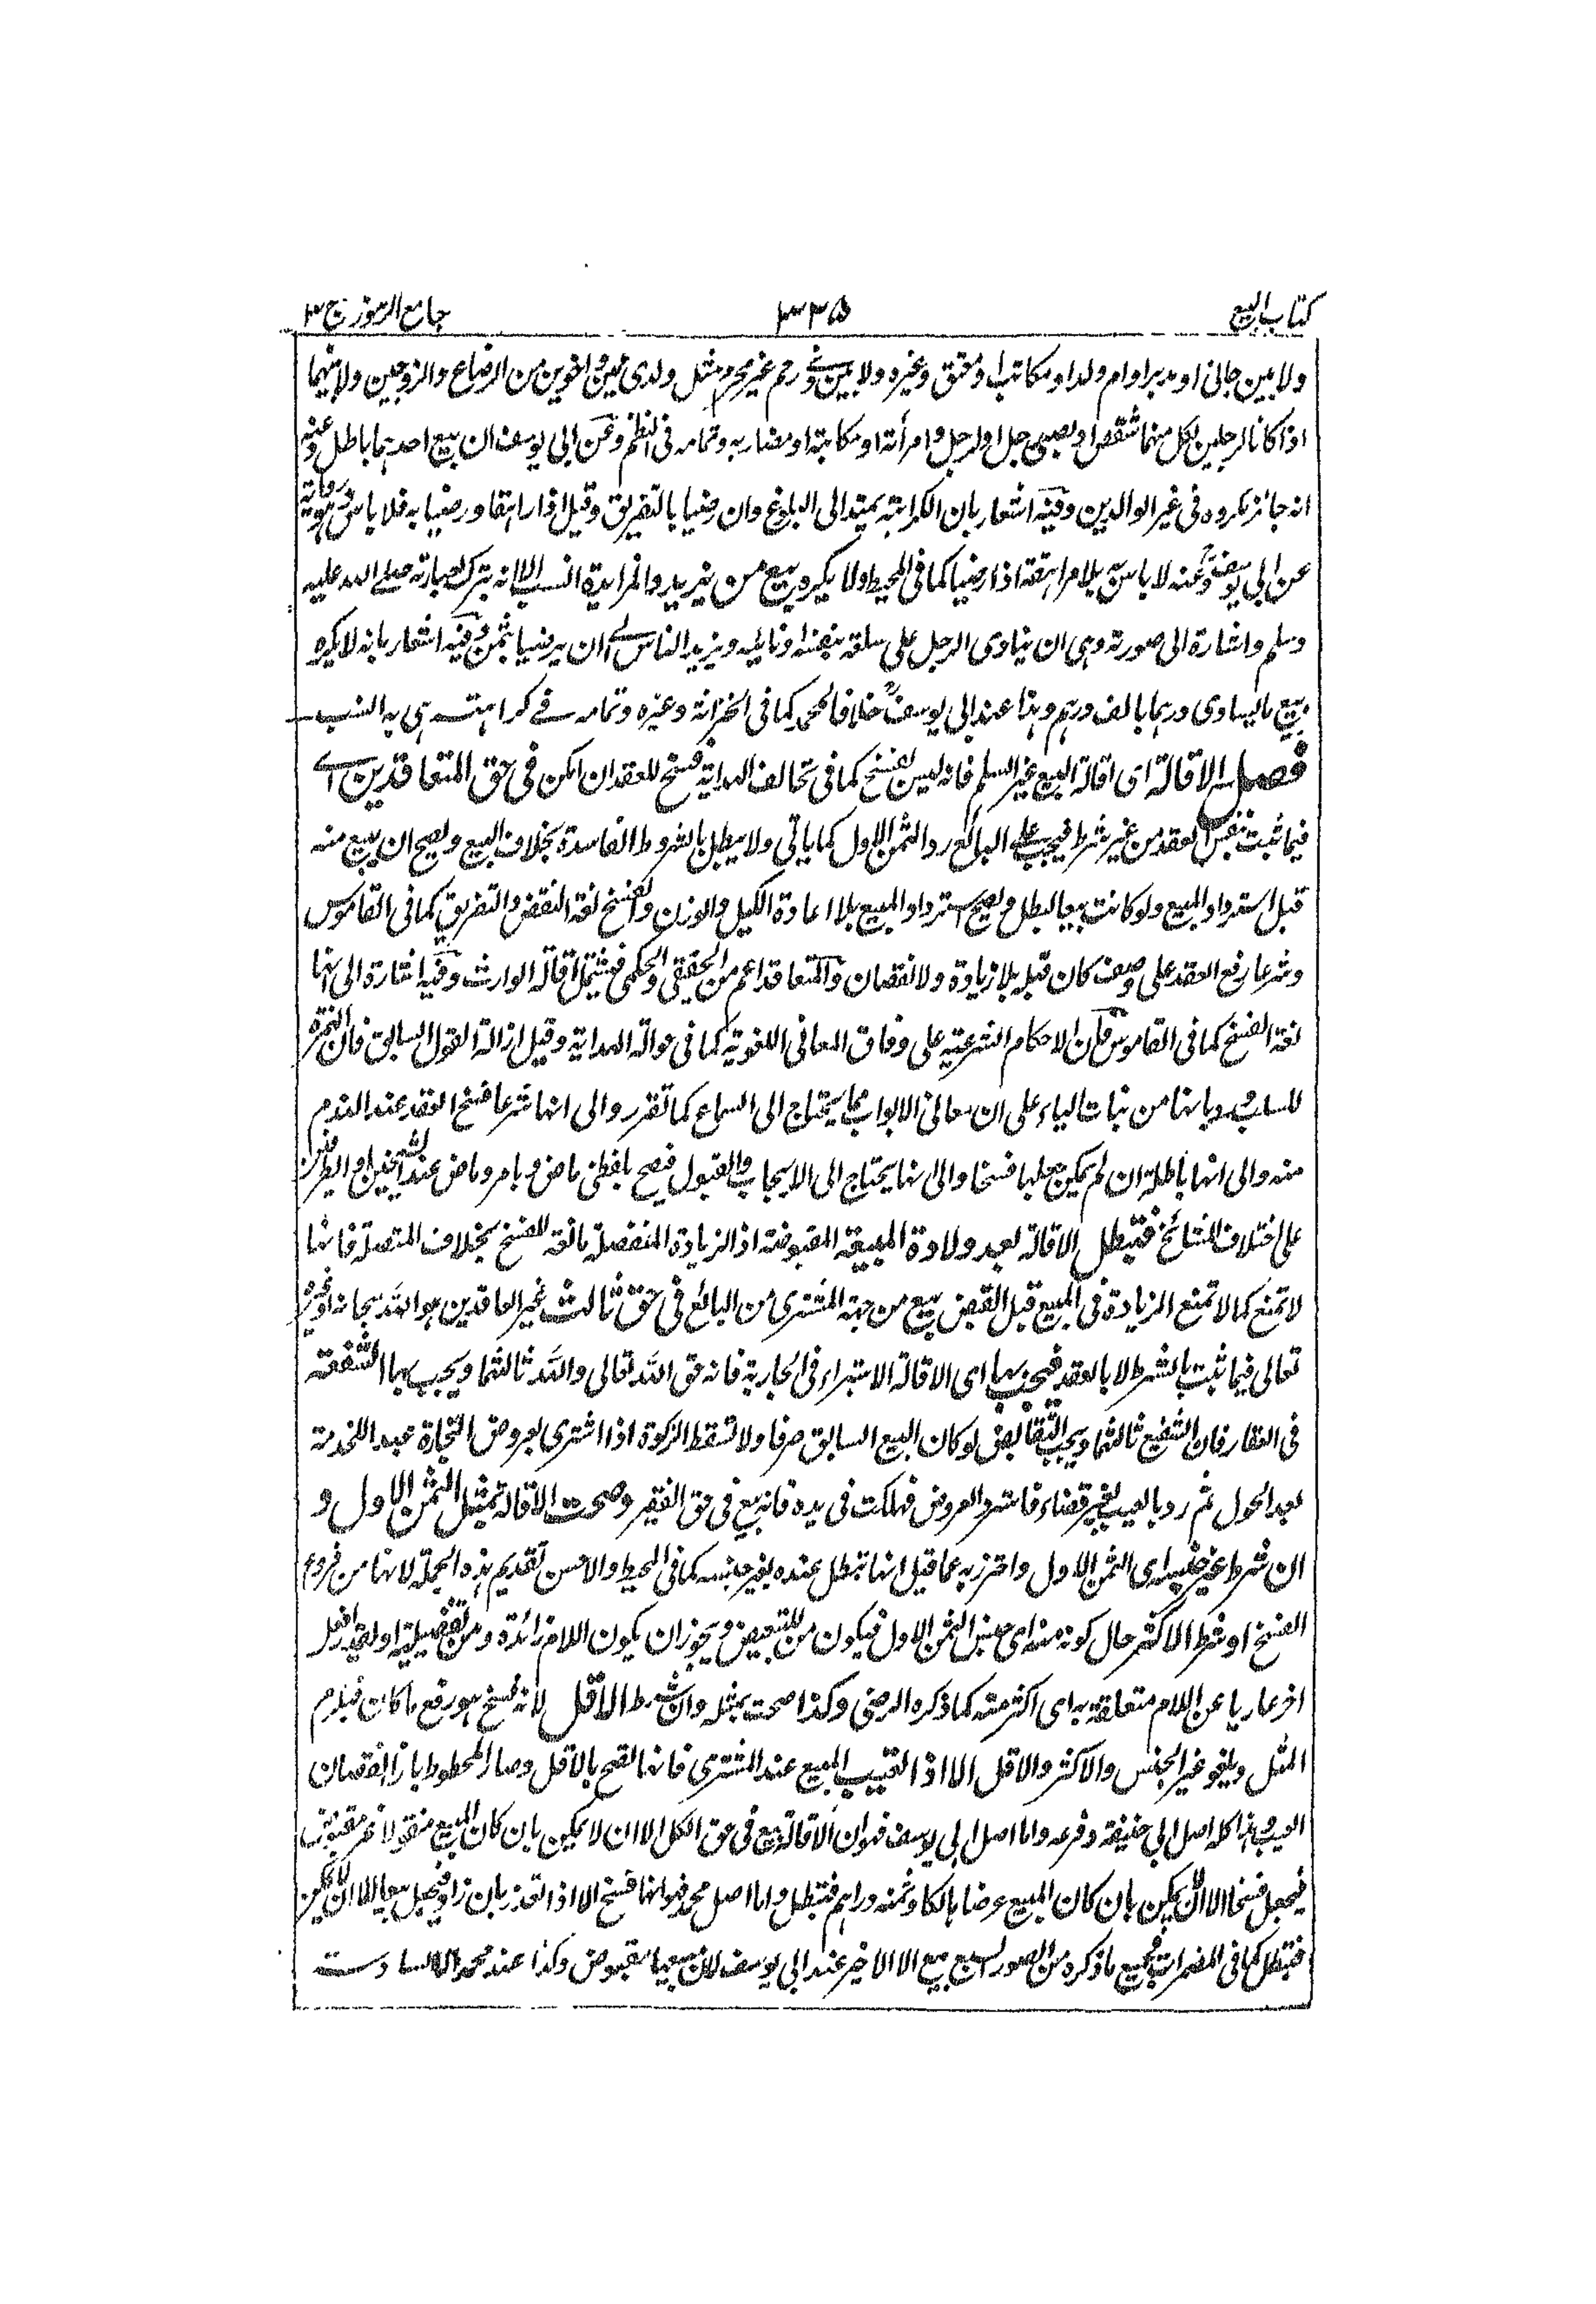 كتاب البيع ٣٣٥ جامع الرموز ج ٣
ولا بين جانى او مدبر او ام ولد او مكاتب او معتق وغيره ولا بين ذى رحم غير محرم مثل ولدى عمين و اخوين من الرضاع والزوجين ولا منهما
اذا كانا لرجلين لكل منهما شقص او لصبى رجل او لرجل وامرأته او مكاتبه او مضاربه وتمامه فى النظم وعن ابى يوسف ان بيع احدهما باطل وعنه
انه جائز مكروه فى غير الوالدين وفيه اشعار بان الكراهة يمتد الى البلوغ وان رضيا بالتفريق وقيل اذا راهقا ورضيا به فلا باس وهو رواية
عن ابى يوسف وعنه لا باس به بلا مراهقة اذا رضيا كما فى المحيط ولا يكره بيع من يزيد والمزايدة انسب الا انه تبرك بعبارته صلى الله عليه
وسلم واشارة الى صورته وهى ان ينادى الرجل على سلعته بنفسه او نائبه ويزيد الناس الى ان يرضيا بثمن وفيه اشعار بانه لا يكره
بيع ما يساوى درهما بالف درهم وهذا عند ابى يوسف خلافا لمحمد كما فى الخزانة وغيره وتمامه فى كراهته هى به انسب
فصل الاقالة اى اقالة البيع غير السلم فانه ليس بفسخ كما فى تحالف الهداية فسخ للعقد ان امكن فى حق المتعاقدين اى
فيما ثبت بنفس العقد من غير شرط فيجب على البائع رد الثمن الاول كما ياتى ولا يبطل بالشروط الفاسدة بخلاف البيع ويصح ان يبيع منه
قبل استرداد المبيع ولو كانت بيعا لبطل ويصح استرداد المبيع بلا اعادة الكيل والوزن والفسخ لغة النقض والتفريق كما فى القاموس
وشرعا رفع العقد على وصف كان قبله بلا زيادة ولا نقصان والمتعاقد اعم من الحقيقى والحكمى فيشتمل اقالة الوارث وفيه اشارة الى انها
لغة الفسخ كما فى القاموس فان الاحكام الشرعية على وفاق المعانى اللغوية كما فى حوالة الهداية وقيل ازالة القول السابق فان الهمزة
للسلب ويرد بانها من بنات الياء على ان معانى الابواب مما يحتاج الى السماع كما تقرر والى انها شرعا فسخ العقد عند الندم
منه والى انها باطلة ان لم يمكن جعلها فسخا والى انها يحتاج الى الايجاب والقبول فيصح بلفظى ماض و بامر وماض عند الشيخين او الطرفين
على اختلاف المشائخ فتبطل الاقالة بعد ولادة المبيعة المقبوضة اذ الزيادة المنفصلة مانعة للفسخ بخلاف المتصلة فانها
لا تمنع كما لا تمنع الزيادة فى المبيع قبل القبض بيع من جهة المشترى من البائع فى حق ثالث غير العاقدين هو الله سبحانه او غيره
تعالى فيما ثبت بالشرط لا بالعقد فيجب بها اى الاقالة الاستبراء فى الجارية فانه حق الله تعالى والله ثالثهما ويجب بها الشفعة
فى العقار فان الشفيع ثالثهما ويجب التقابض لو كان البيع السابق صرفا ولا تسقط الزكوة اذا اشترى بعروض التجارة عبدا للخدمة
بعد الحول ثم رد بالعيب بغير قضاء فاسترد العروض فهلكت فى يده فانه بيع فى حق الفقير وصحت الاقالة بمثل الثمن الاول و
ان شرط غير جنسه اى الثمن الاول واحترز به عما قيل انها تبطل عنده بغير جنسه كما فى المحيط والاحسن تقديم هذه الجملة لانها من فروع
الفسخ او شرط الاكثر حال كونه منه اى جنس الثمن الاول فيكون من للتبعيض ويجوز ان يكون اللام زائدة ومن تفضيلية او لفعل
اخر عاريا عن اللام متعلقة به اى اكثر منه كما ذكره الرضى وكذا صحت بمثله وان شرط الاقل لانه فسخ هو رفع ما كان فيلزم
المثل ويلغو غير الجنس والاكثر والاقل الا اذا تعيب المبيع عند المشترى فانها تصح بالاقل وصار المحطوط بازاء نقصان
العيب وهذا كله اصل ابى حنيفة وفرعه واما اصل ابى يوسف فهو ان الاقالة بيع فى حق الكل الا ان لا يمكن بان كان المبيع منقولا غير مقبوض
فيجعل فسخا الا ان لا يمكن بان كان المبيع عرضا هالكا وثمنه دراهم فتبطل واما اصل محمد فهو انها فسخ الا اذا تعذر بان زاد فيجعل بيعا الا ان لا يمكن
فتبطل كما فى المضمرات فجميع ما ذكره من الصور السبع بيع الا الاخير عند ابى يوسف لانه بيع ما يقبوض وكذا عند محمد الا السادسة